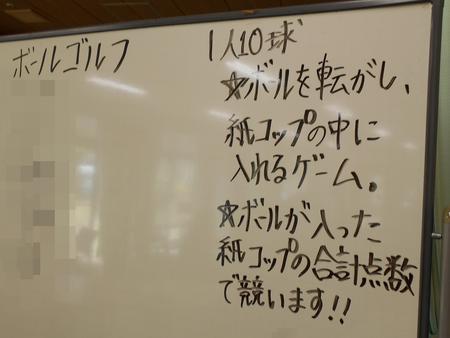 ボールゴルフ
1人10球
☆ボールを転がし、
紙コップの中に
入れるゲーム。
☆ボールが入った
紙コップの合計点数
で競います!!